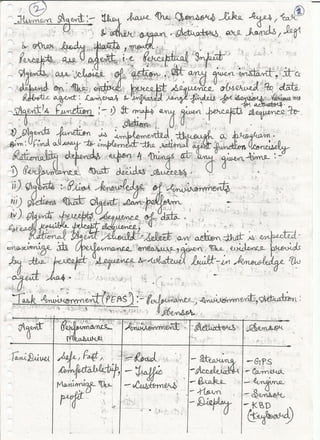 2
Human Agent :- They have the sensors like eyes, ear
& other organ. Actuators are hands, legs
& other body parts, mouth
Percepts are agent i.e Perceptual Input
Agents are choice of action. At any given instant, it
depend on the entire percept sequence observed to date
Robotic agent: Cameras & infrared range finders for sensors.
for actuators.
Agent's Function :- i) It maps any given percept sequence to
action
ii) Agents function is implemented through a program.
Aim: Find a way to implement the rational agent function concisely
Rationality depends upon 4 things at any given time :-
i) Performance that decides success
ii) Agents : Prior knowledge of environments
iii) Actions that Agent can perform
iv) Agents percepts sequence of data.
For each possible percept sequence,
Rational Agent should select an action that is expected
maximize its performance measure, given the evidence provide
by the percept sequence & whatever built-in knowledge the
agent has.
Task Environment (PEAS) : Performance, environment, Actuation
Sensor
Agent Performance Measure Environment Actuators Sensor
Taxi Driver Safe, Fast, – Road – Steering – GPS
Comfortable trip, – Traffic – Accelerator – Camera
Maximize the – Customers – Brake – Engine
profit – Horn – Sensor
– Display – KBD
(Keyboard)